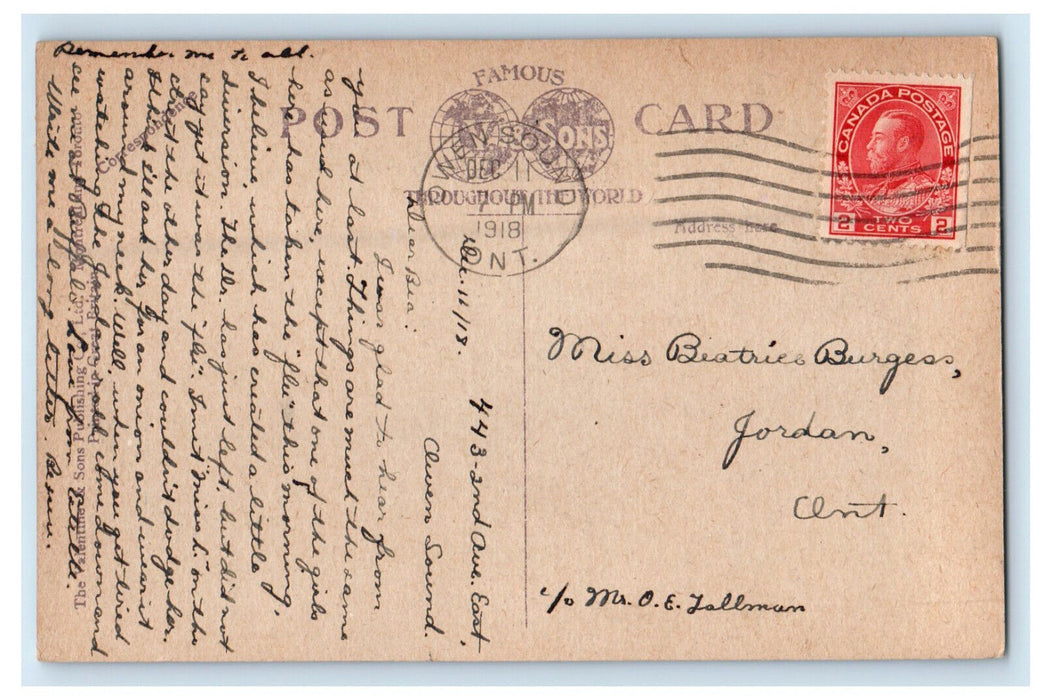 FAMOUS
POST CARD
VALENTINE & SONS
THROUGHOUT THE WORLD
OWEN SOUND
DEC 11
7 PM
1918
ONT.
CANADA POSTAGE
2 TWO CENTS 2
Address here
Correspondence
The Valentine & Sons Publishing Co., Ltd., Montreal and Toronto
Printed in Great Britain
Miss Beatrice Burgess,
Jordan,
Ont.
c/o Mr. O. E. Tallman
443-2nd Ave. East,
Owen Sound.
Dec. 11/18.
Dear Bea:
I was glad to hear from
you at last. Things are much the same
as and here, except that one of the girls
here has taken the "flu" this morning,
I believe, which has created a little
diversion. The Dr. has just left, but did not
say yet it was the "flu". I met "Miss L" on the
street the other day and couldn't dodge her.
I think I'll ask her for an onion and wear it
around my neck. Well, when you get tired
watching the Jordan roll, come down and
see
Write me a long letter. Bessie.
Remember me to all.